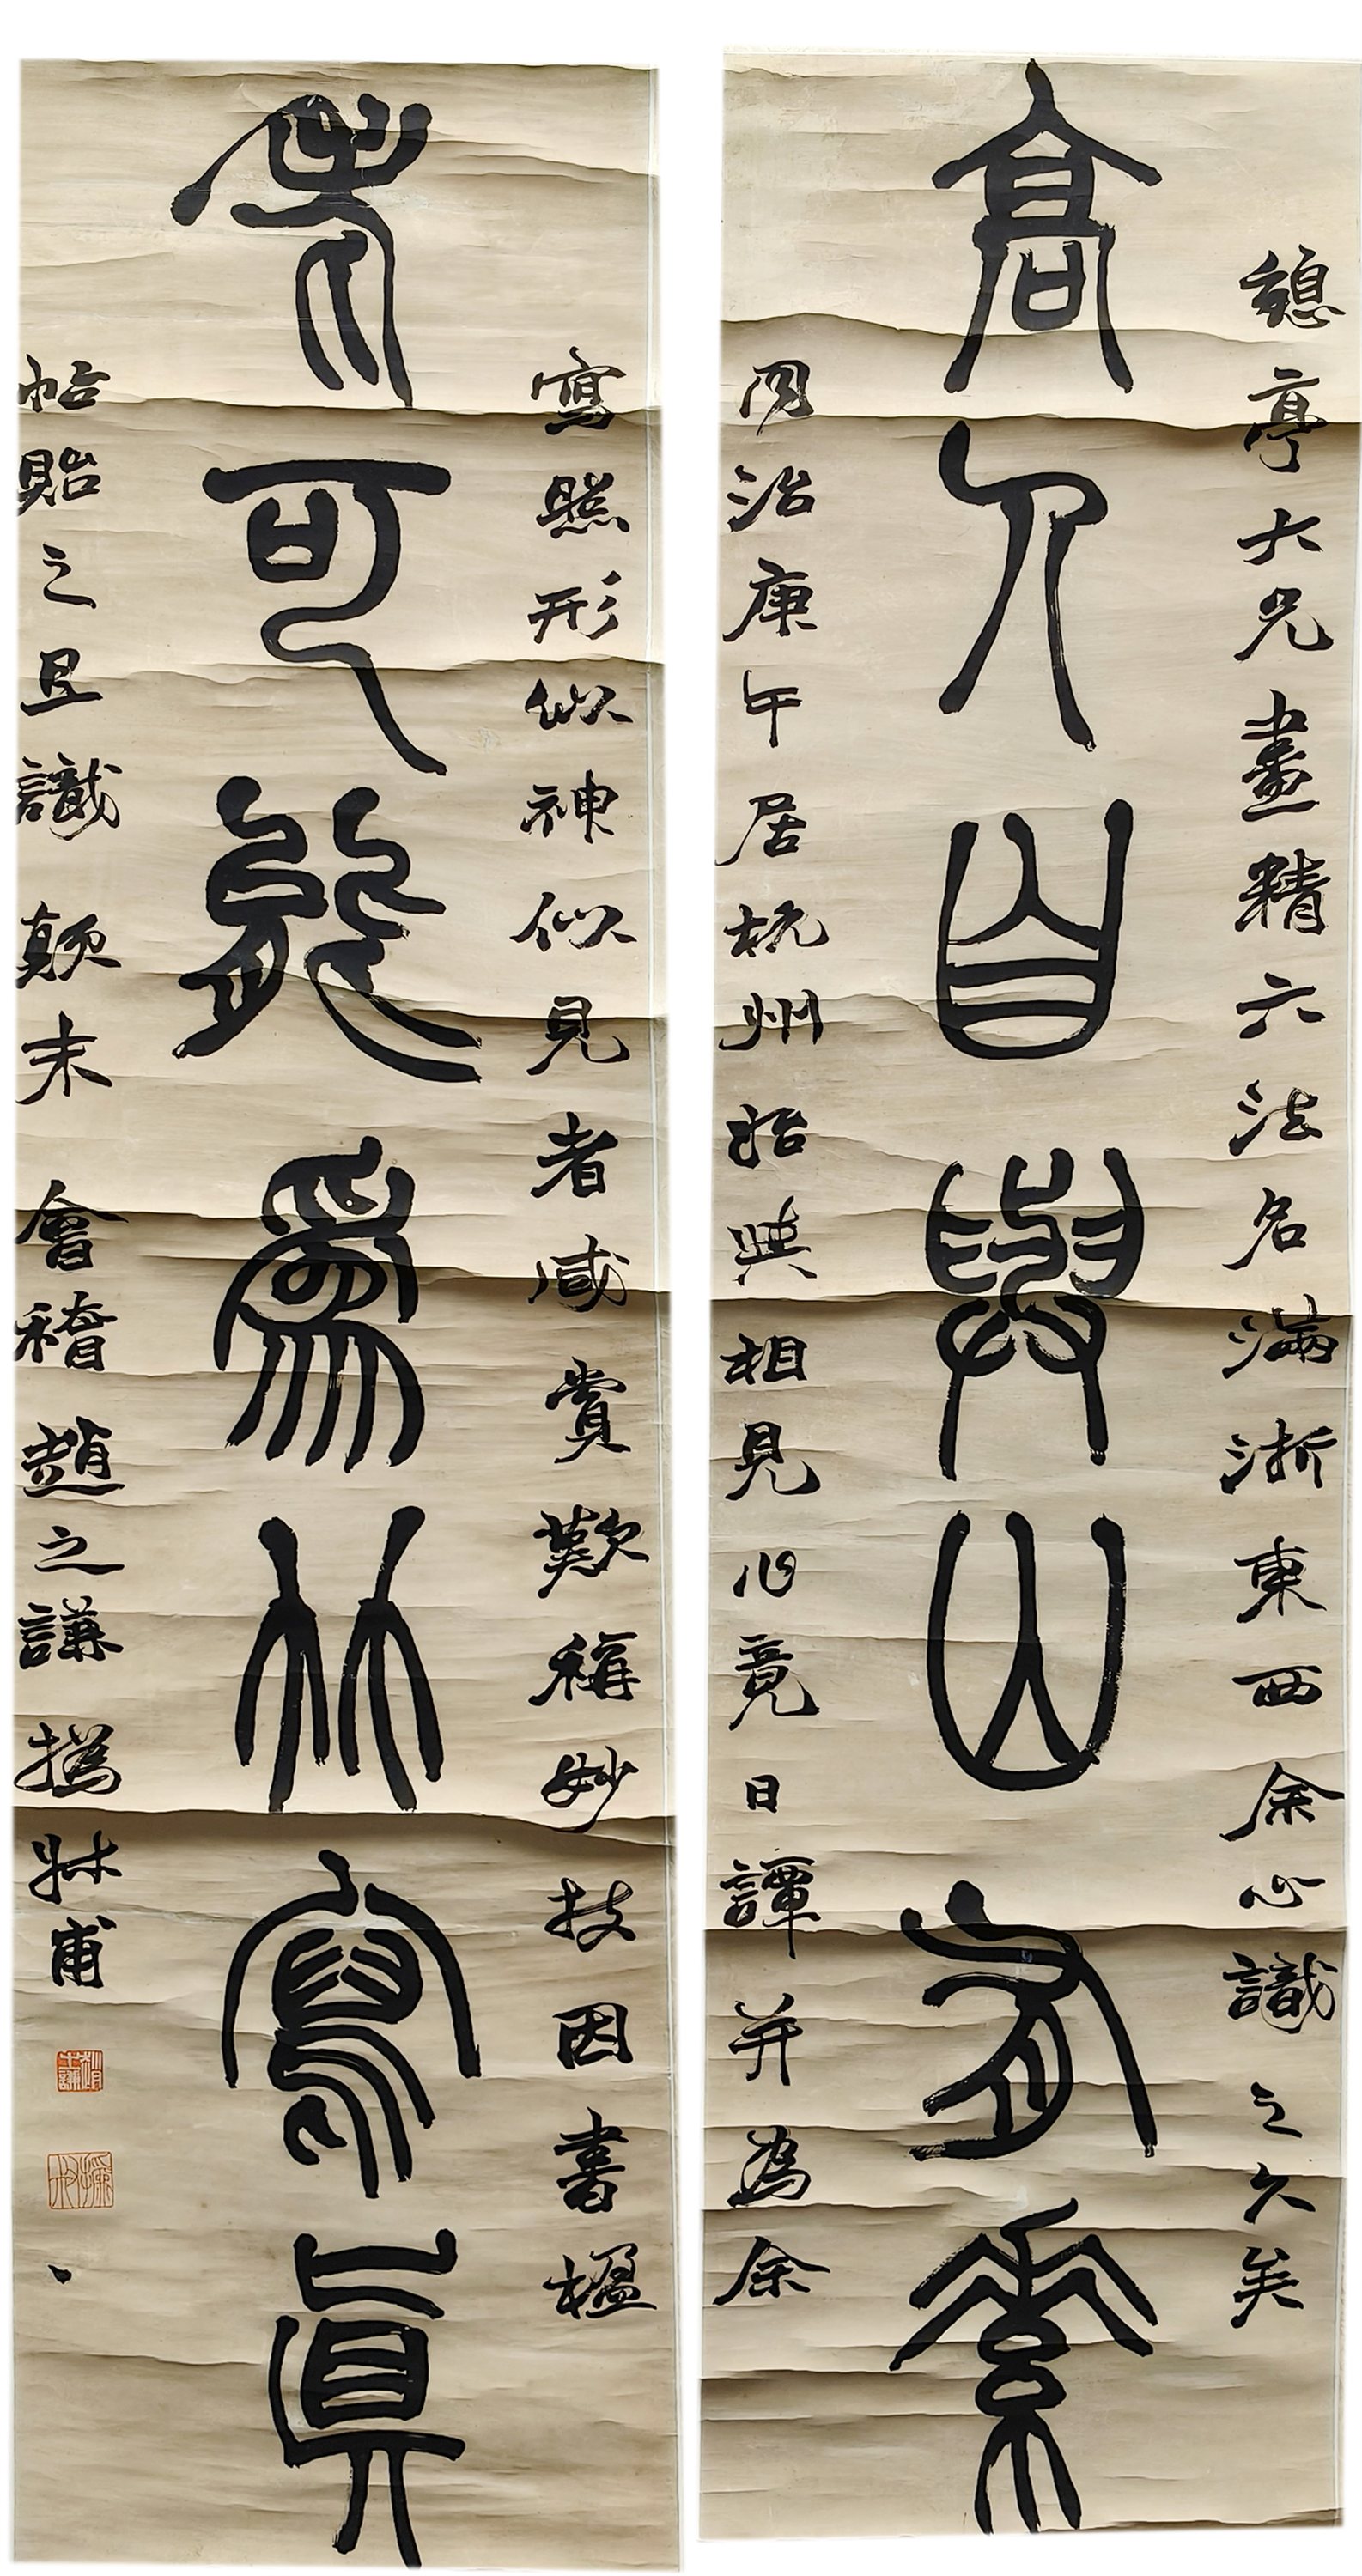 憩亭大兄畫精六法名滿浙東西余心識之久矣
高人自與山有素
同治庚午居杭州始與相見必竟日譚并為余
寫照形似神似見者咸賞歎稱妙技因書楹
老可能為竹寫真
帖貽之且識顛末會稽趙之謙撝叔甫
趙之謙
撝叔